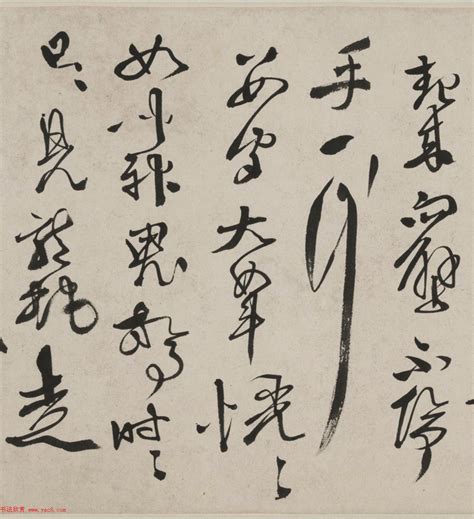 起來向壁不停
手一行
數字大如斗恍々
如聞神鬼驚時々
只見龍蛇走
书法欣赏 www.yac8.com